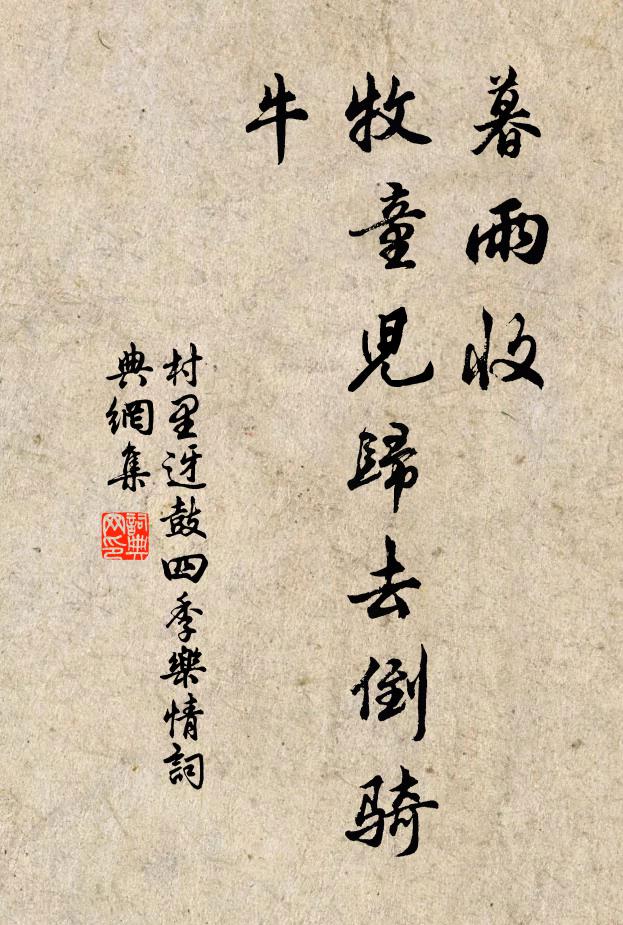 暮雨收
牧童兒歸去倒騎
牛
村里迓鼓四季樂情詞
典網集
詞典
网印